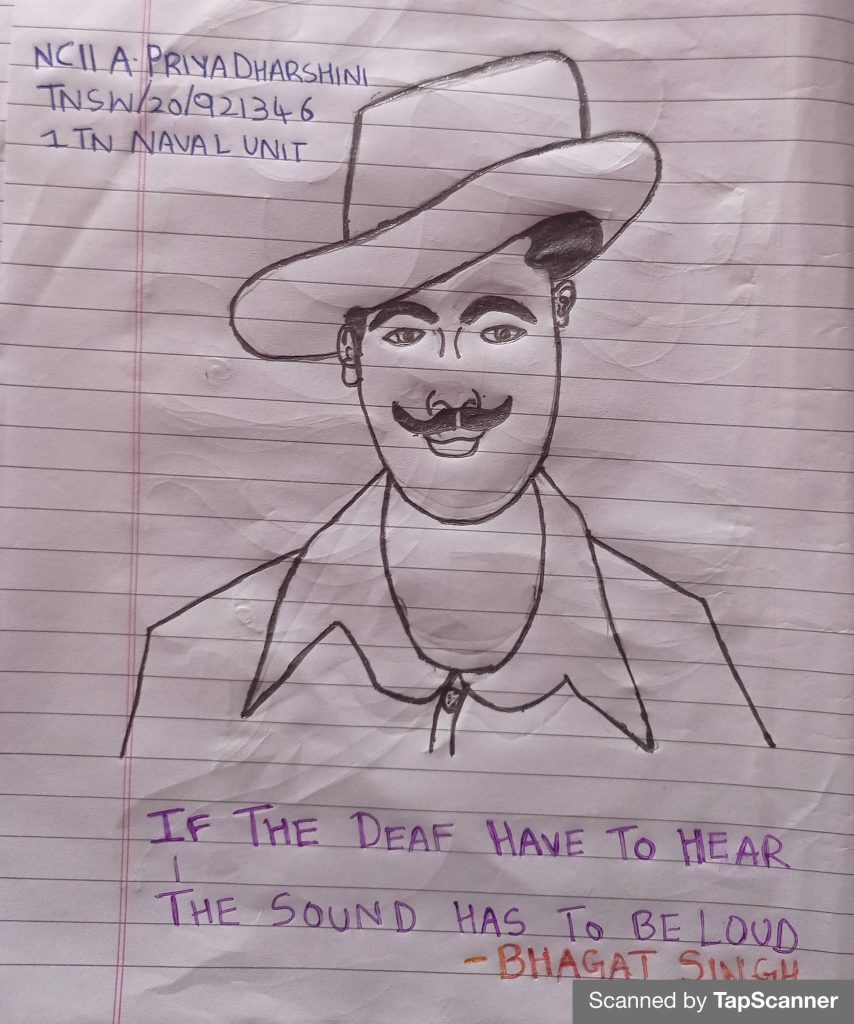 NCII A. PRIYADHARSHINI
TNSW/20/921346
1 TN NAVAL UNIT
IF THE DEAF HAVE TO HEAR
THE SOUND HAS TO BE LOUD
- BHAGAT SINGH
Scanned by TapScanner